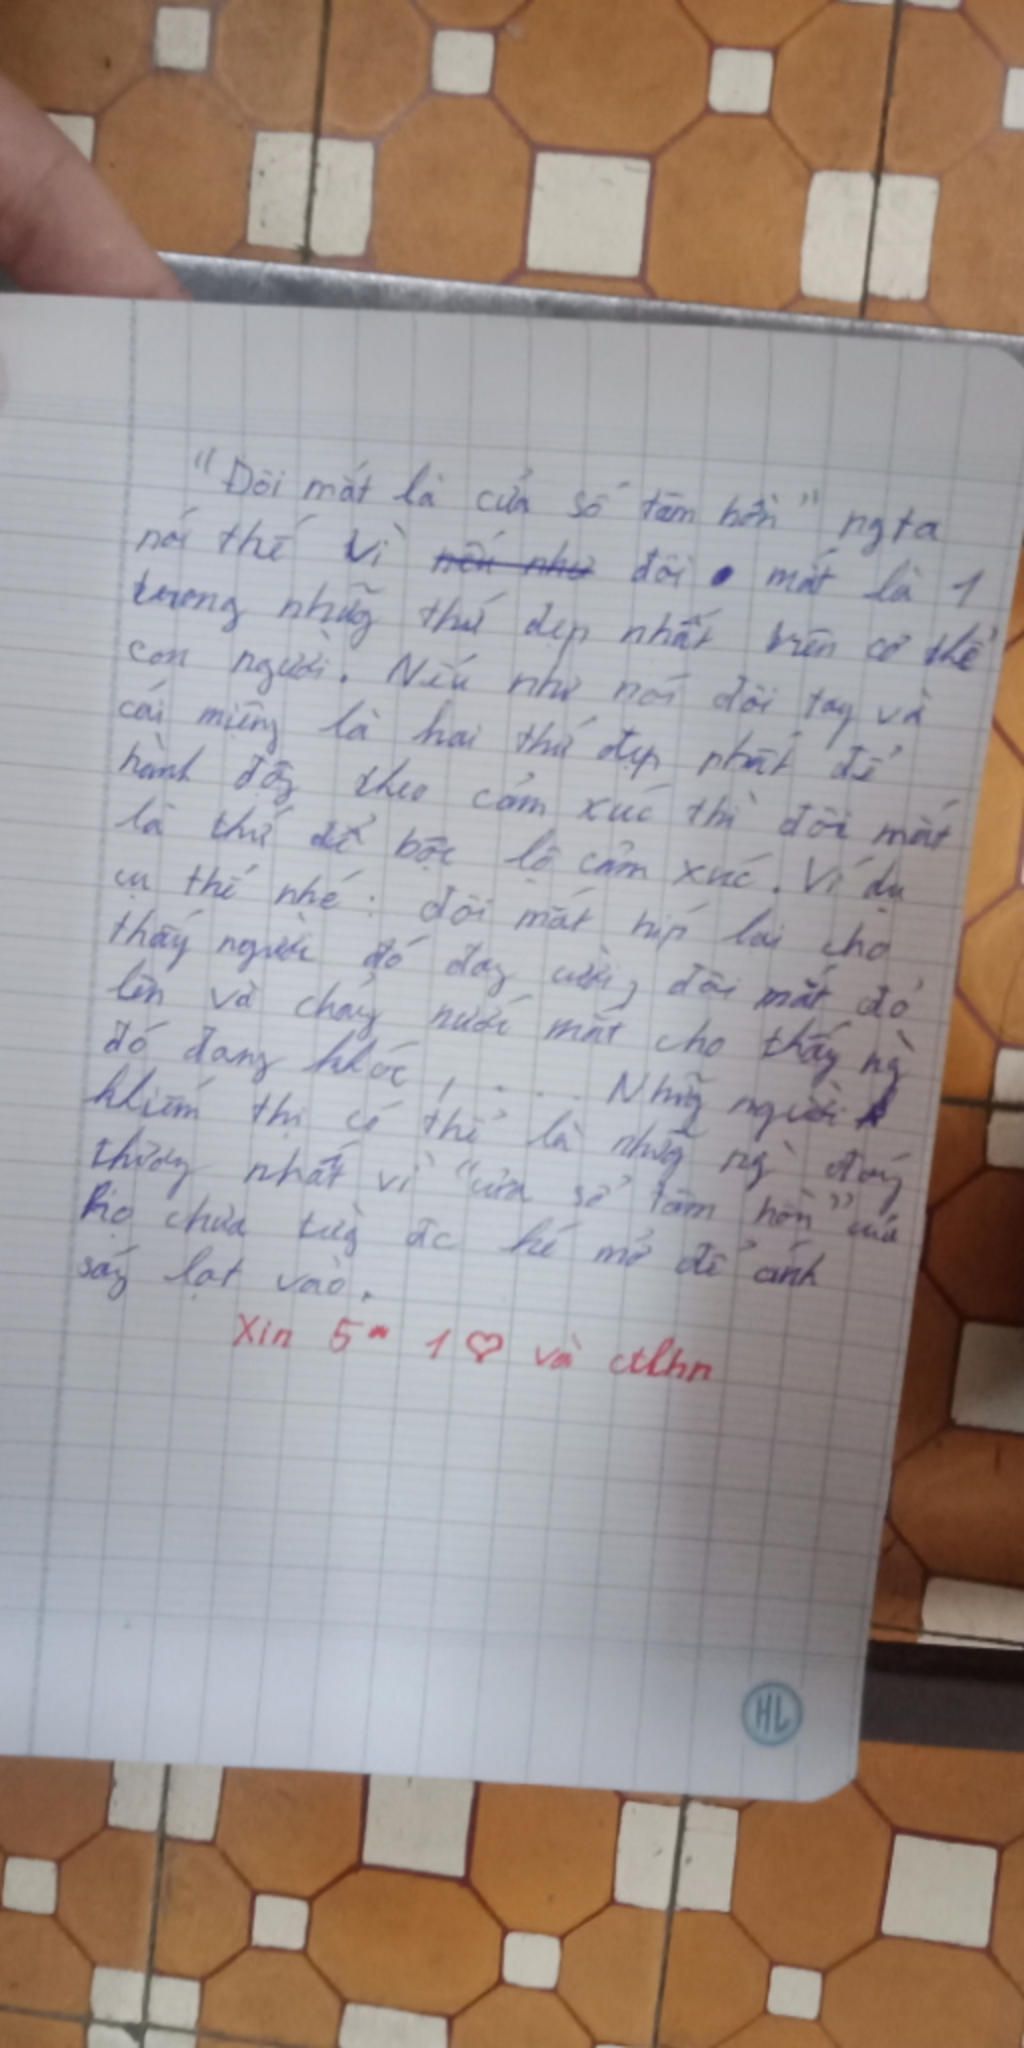 "Đôi mắt là cửa sổ tâm hồn" ngta
nói thế vì nếu như đôi mắt là 1
trong những thứ đẹp nhất trên cơ thể
con người. Nếu như nói đôi tay và
cái miệng là hai thứ đẹp nhất để
hành động theo cảm xúc thì đôi mắt
là thứ để bộc lộ cảm xúc. Ví dụ
cụ thể nhé: đôi mắt híp lại cho
thấy người đó đag cười, đôi mắt đỏ
lên và chảy nước mắt cho thấy ng`
đó đang khóc, .... Những người
khiếm thị có thể là những ng` đáng
thương nhất vì "cửa sổ tâm hồn" của
họ chưa từng đc hé mở để ánh
sáng lạt vào.
Xin 5* 1 ♡ và ctlhn
HL